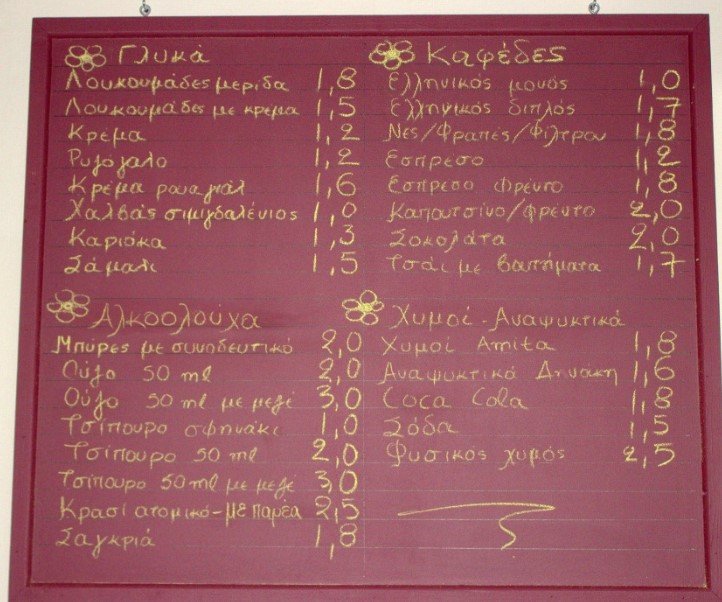 Γλυκά
Λουκουμάδες μερίδα 1,8
Λουκουμάδες με κρέμα 1,5
Κρέμα 1,2
Ρυζόγαλο 1,2
Κρέμα ρουαγιάλ 1,6
Χαλβάς σιμιγδαλένιος 1,0
Καριόκα 1,3
Σάμαλι 1,5
Αλκοολούχα
Μπύρες με συνοδευτικό 2,0
Ούζο 50 ml 2,0
Ούζο 50 ml με μεζέ 3,0
Τσίπουρο σφηνάκι 1,0
Τσίπουρο 50 ml 2,0
Τσίπουρο 50 ml με μεζέ 3,0
Κρασί ατομικό-με παρέα 2,5
Σαγκριά 1,8
Καφέδες
Ελληνικός μονός 1,0
Ελληνικός διπλός 1,7
Νες/Φραπές/Φίλτρου 1,8
Εσπρεσο 1,2
Εσπρεσο Φρέντο 1,8
Καπουτσίνο/φρέντο 2,0
Σοκολάτα 2,0
Τσάι με βουτήματα 1,7
Χυμοί - Αναψυκτικά
Χυμοί Amita 1,8
Αναψυκτικά Δηνάκη 1,6
Coca Cola 1,8
Σόδα 1,5
Φυσικός χυμός 2,5